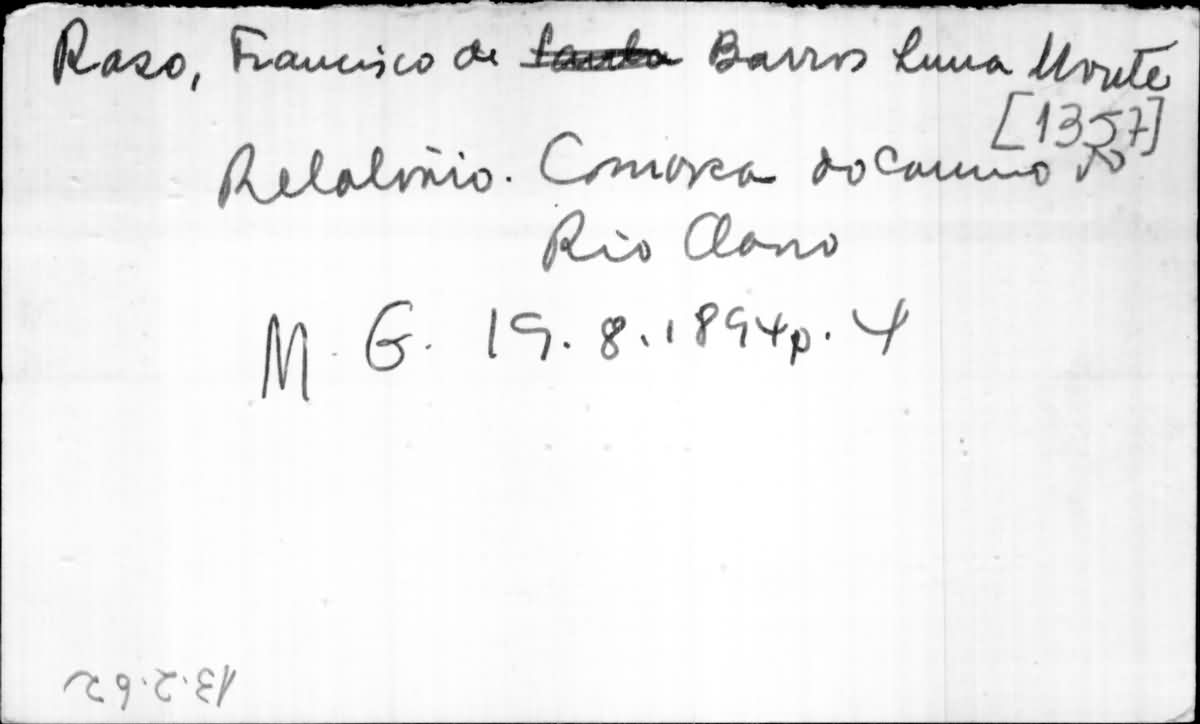 Raso, Francisco de Santa Barros Lima Monte
[1357]
Relatório. Comarca do Carmo do
Rio Claro
M. G. 19.8.1894 p. 4
13.2.62